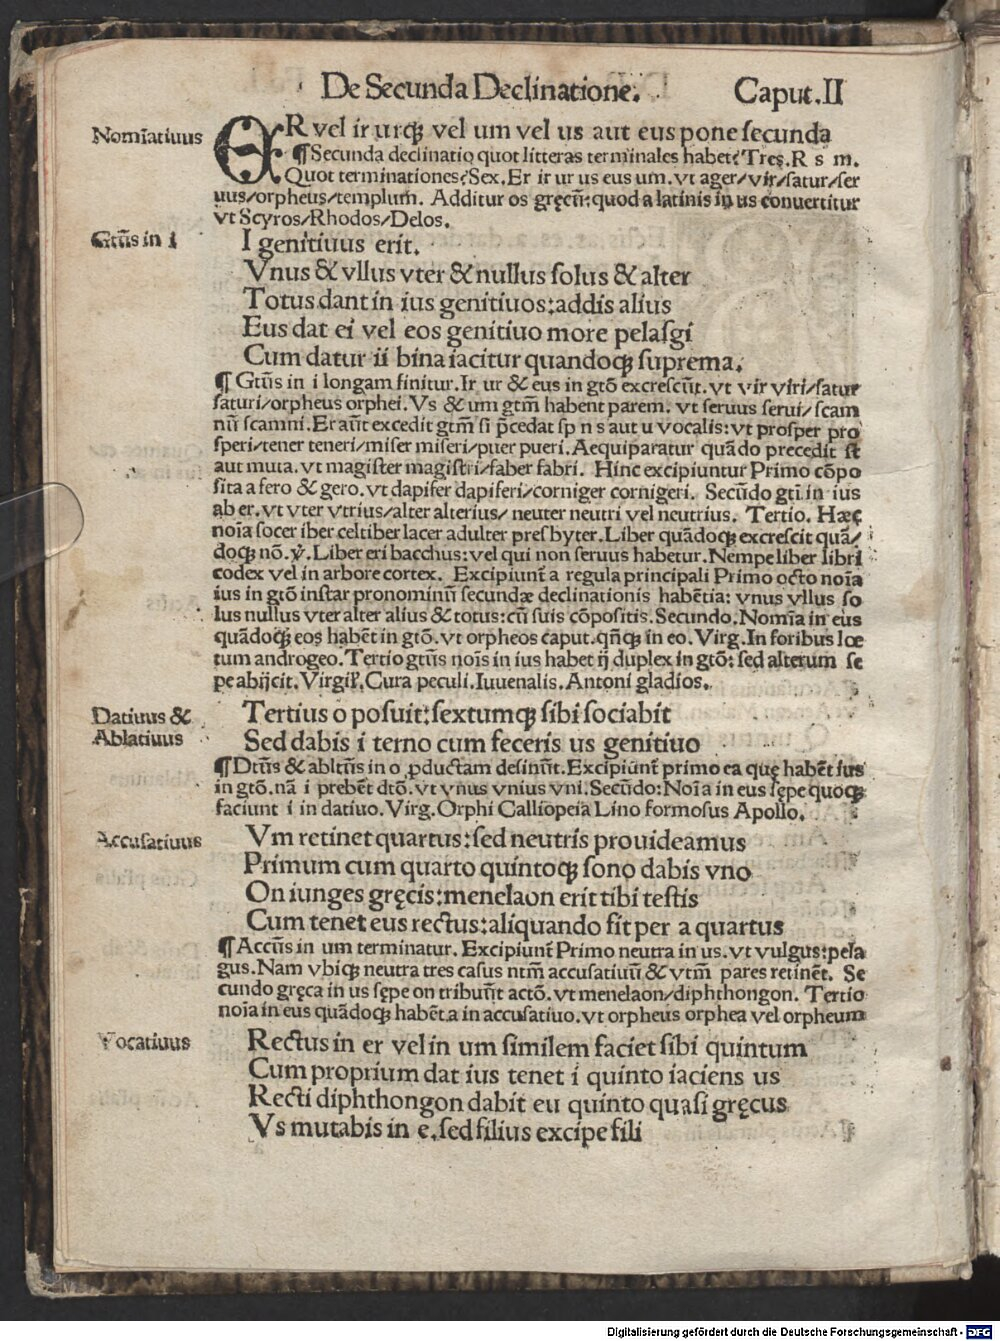 De Secunda Declinatione. Caput.II
Nomĩatiuus
ER vel ir urq; vel um vel us aut eus pone secunda
¶Secunda declinatio quot litteras terminales habet? Tres. R s m.
Quot terminationes? Sex. Er ir ur us eus um. vt ager/vir/satur/ser
uus/orpheus/templum. Additur os gręcũ: quod a latinis in us conuertitur
vt Scyros/Rhodos/Delos.
Gtũs in i
I genitiuus erit.
Vnus & vllus vter & nullus solus & alter
Totus dant in ius genitiuos: addis alius
Eus dat ei vel eos genitiuo more pelasgi
Cum datur ii bina iacitur quandoq; suprema.
¶ Gtũs in i longam finitur. Ir ur & eus in gtõ excrescũt. vt vir viri/satur
saturi/orpheus orphei. Vs & um gtm̃ habent parem. vt seruus serui/scam
nũ scamni. Er aũt excedit gtm̃ si p̃cedat sp n s aut u vocalis: vt prosper pro
speri/tener teneri/miser miseri/puer pueri. Aequiparatur quãdo precedit st
aut muta. vt magister magistri/faber fabri. Hinc excipiuntur Primo cõpo
sita a fero & gero. vt dapifer dapiferi/corniger cornigeri. Secũdo gti in ius
ab er. vt vter vtrius/alter alterius/ neuter neutri vel neutrius. Tertio. Hæc
noĩa socer iber celtiber lacer adulter presbyter. Liber quãdoq; excrescit quã/
doq; nõ. v̾. Liber eri bacchus: vel qui non seruus habetur. Nempe liber libri
codex vel in arbore cortex. Excipiunt̃ a regula principali Primo octo noĩa
ius in gtõ instar pronominũ secundæ declinationis habẽtia: vnus vllus so
lus nullus vter alter alius & totus: cũ suis cõpositis. Secundo. Nomĩa in eus
quãdoq; eos habẽt in gtõ. vt orpheos caput. qñq; in eo. Virg. In foribus lœ
tum androgeo. Tertio gtũs noĩs in ius habet ij duplex in gtõ: sed alterum se
pe abijcit. Virgil̕. Cura peculi. Iuuenalis. Antoni gladios.
Datiuus &
Ablatiuus
Tertius o posuit: sextumq; sibi sociabit
Sed dabis i terno cum feceris us genitiuo
¶Dtũs & abltũs in o ꝓductam desinũt. Excipiũnt̃ primo ea quę habẽt ius
in gtõ. nã i prebẽt dtõ. vt vnus vnius vni. Secũdo: Noĩa in eus sępe quoq;
faciunt i in datiuo. Virg. Orphi Calliopeia Lino formosus Apollo.
Accusatiuus
Vm retinet quartus: sed neutris prouideamus
Primum cum quarto quintoq; sono dabis vno
On iunges gręcis: menelaon erit tibi testis
Cum tenet eus rectus: aliquando fit per a quartus
¶Accũs in um terminatur. Excipiunt̃ Primo neutra in us. vt vulgus: pela
gus. Nam vbiq; neutra tres casus ntm̃ accusatiuũ & vtm̃ pares retinẽt. Se
cundo gręca in us sępe on tribuũt actõ. vt menelaon/diphthongon. Tertio
noĩa in eus quãdoq; habẽt a in accusatiuo. vt orpheus orphea vel orpheum
Vocatiuus
Rectus in er vel in um similem faciet sibi quintum
Cum proprium dat ius tenet i quinto iaciens us
Recti diphthongon dabit eu quinto quasi gręcus
Vs mutabis in e. sed filius excipe fili
Digitalisierung gefördert durch die Deutsche Forschungsgemeinschaft - DFG